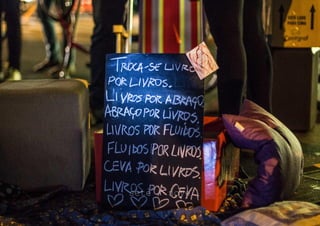 TROCA-SE LIVRO
POR LIVROS.
LIVROS POR ABRAÇO
ABRAÇO POR LIVROS.
LIVROS POR FLUIDOS.
FLUIDOS POR LIVROS
CEVA POR LIVROS.
LIVROS POR CEVA